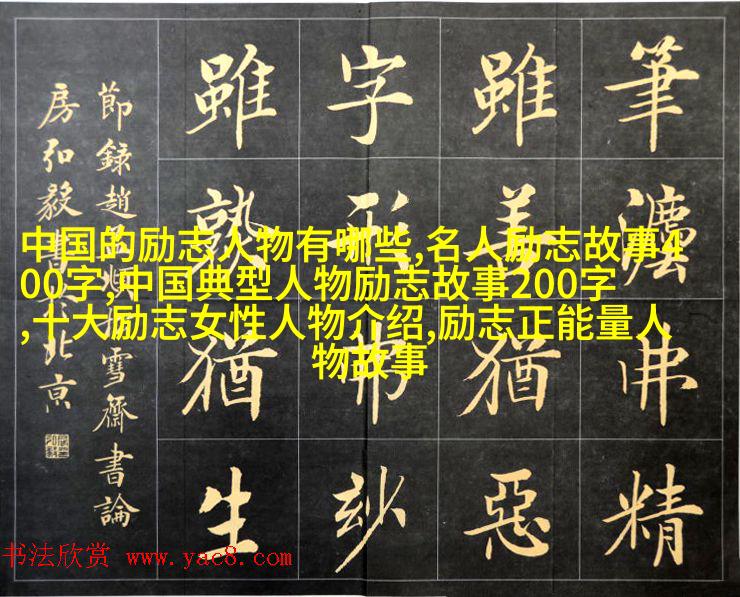 筆灋弗精
雖善猶惡
字形弗玅
雖熟猶生
節錄趙孟頫松雪齋書論
房弘毅書於北京
中国的励志人物有哪些,名人励志故事4
00字,中国典型人物励志故事200字
,十大励志女性人物介绍,励志正能量人
物故事
书法欣赏 www.yac8.com